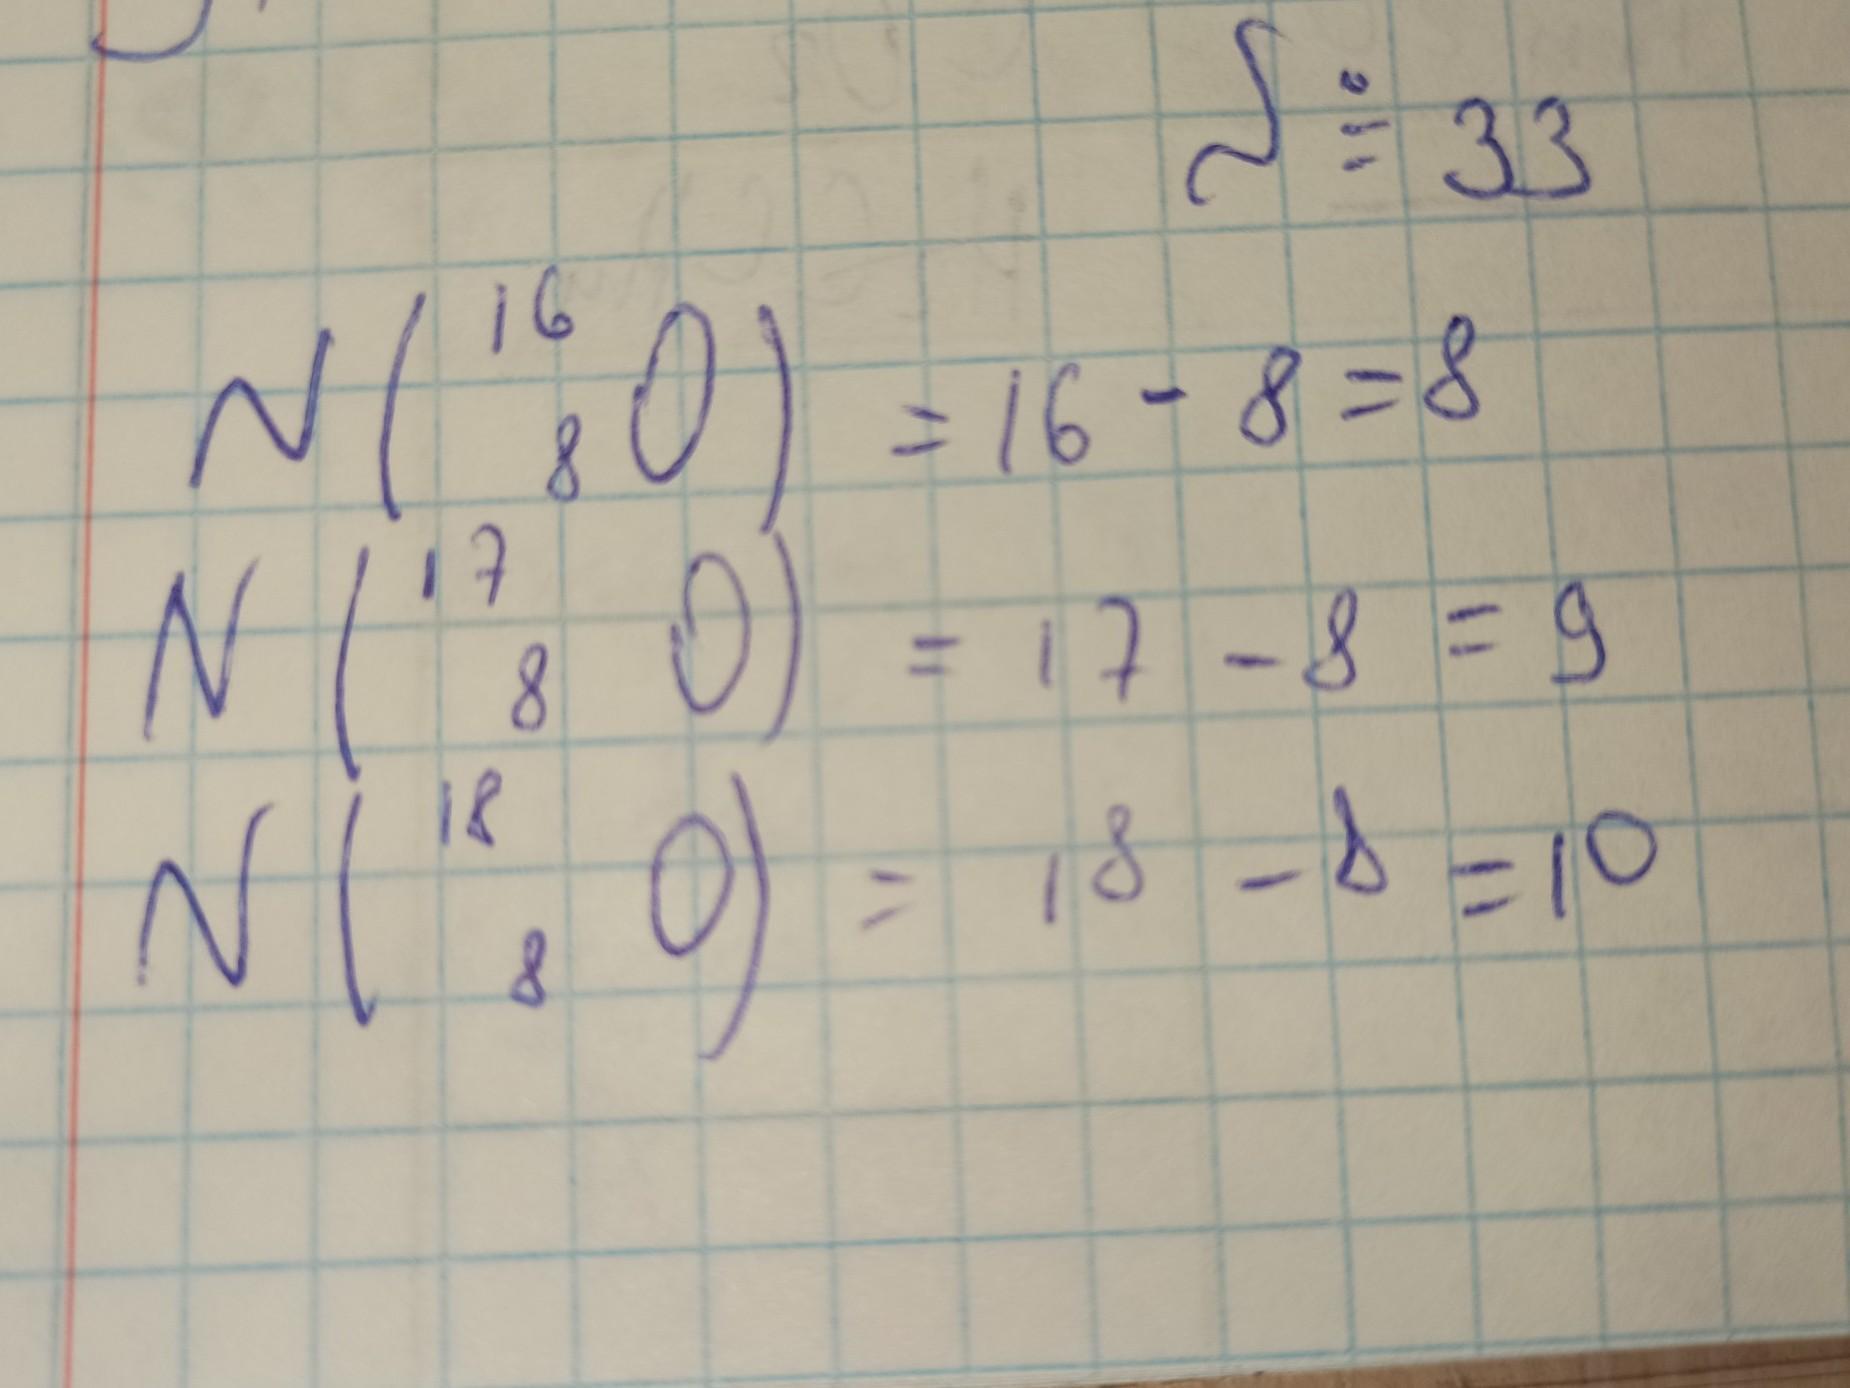 N = 33
N(¹⁶₈O) = 16 - 8 = 8
N(¹⁷₈O) = 17 - 8 = 9
N(¹⁸₈O) = 18 - 8 = 10